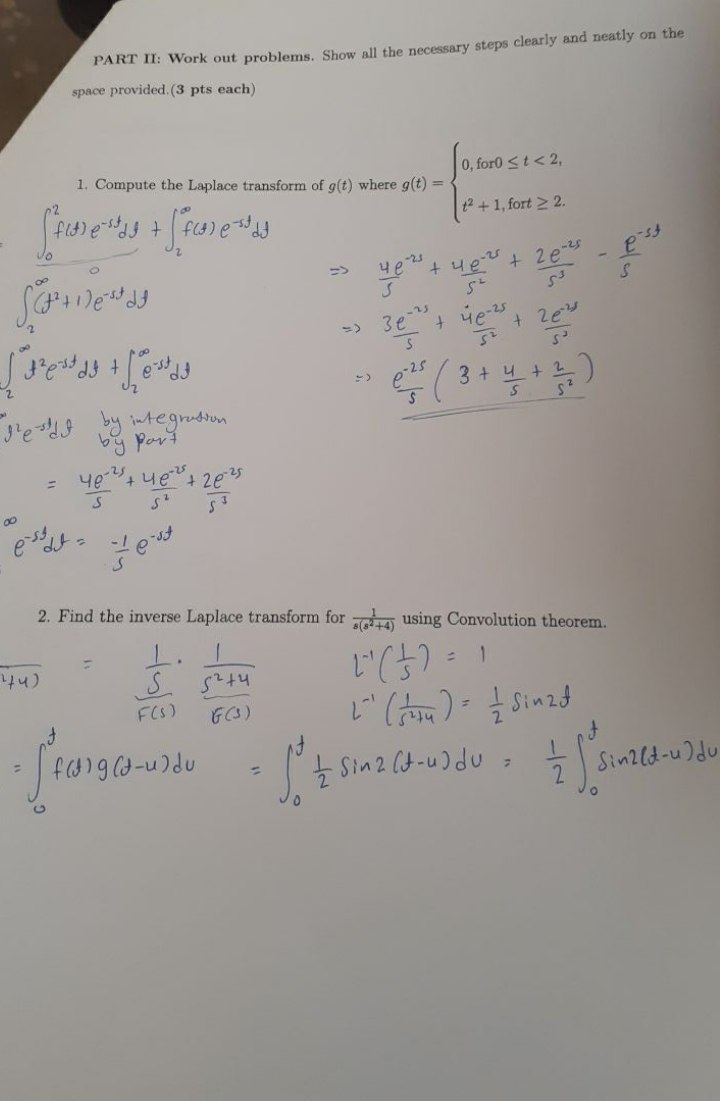 PART II: Work out problems. Show all the necessary steps clearly and neatly on the
space provided.(3 pts each)
1. Compute the Laplace transform of g(t) where g(t) = { 0, for0 ≤ t < 2,
t² + 1, fort ≥ 2.
∫₀² f(t) e^{-st} dt + ∫₂^∞ f(t) e^{-st} dt
0
∫₂^∞ (t²+1) e^{-st} dt
∫₂^∞ t² e^{-st} dt + ∫₂^∞ e^{-st} dt
t² e^{-st} dt by integration
by part
= 4e^{-2s}/s + 4e^{-2s}/s² + 2e^{-2s}/s³
∞ e^{-st} dt = -1/s e^{-st}
=> 4e^{-2s}/s + 4e^{-2s}/s² + 2e^{-2s}/s³ - e^{-st}/s
=> 3e^{-2s}/s + 4e^{-2s}/s² + 2e^{-2s}/s³
=> e^{-2s}/s ( 3 + 4/s + 2/s² )
2. Find the inverse Laplace transform for 1/(s(s²+4)) using Convolution theorem.
²+4) = 1/s · 1/(s²+4)
F(s) G(s)
L⁻¹(1/s) = 1
L⁻¹(1/(s²+4)) = 1/2 sin2t
= ∫₀^t f(t) g(t-u) du = ∫₀^t 1/2 sin2(t-u) du = 1/2 ∫₀^t sin2(t-u) du